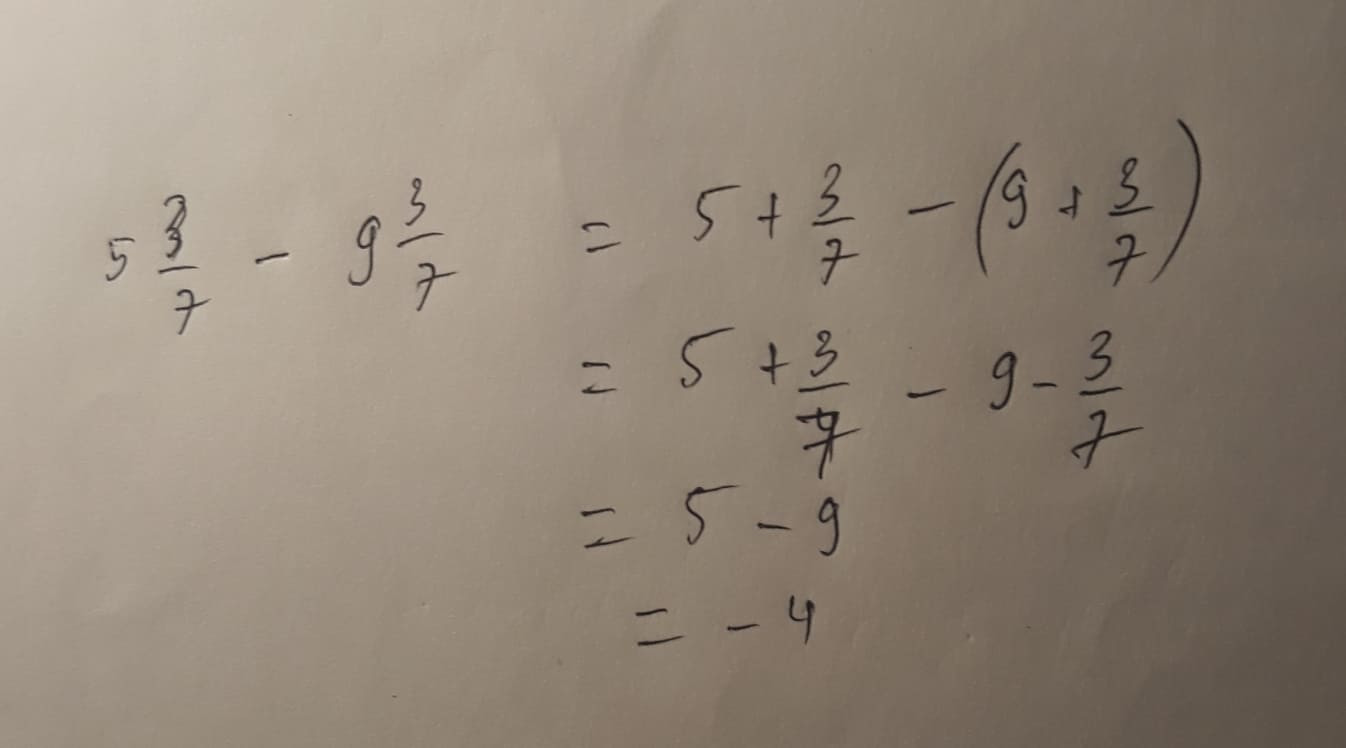 5 3/7 - 9 3/7 = 5 + 3/7 - (9 + 3/7)
= 5 + 3/7 - 9 - 3/7
= 5 - 9
= - 4